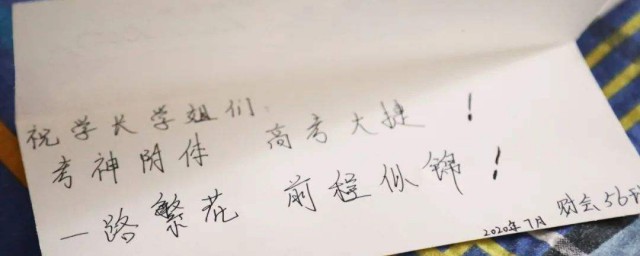 祝学长学姐们：
考神附体 高考大捷！
一路繁花 前程似锦！
2020年7月 财会56